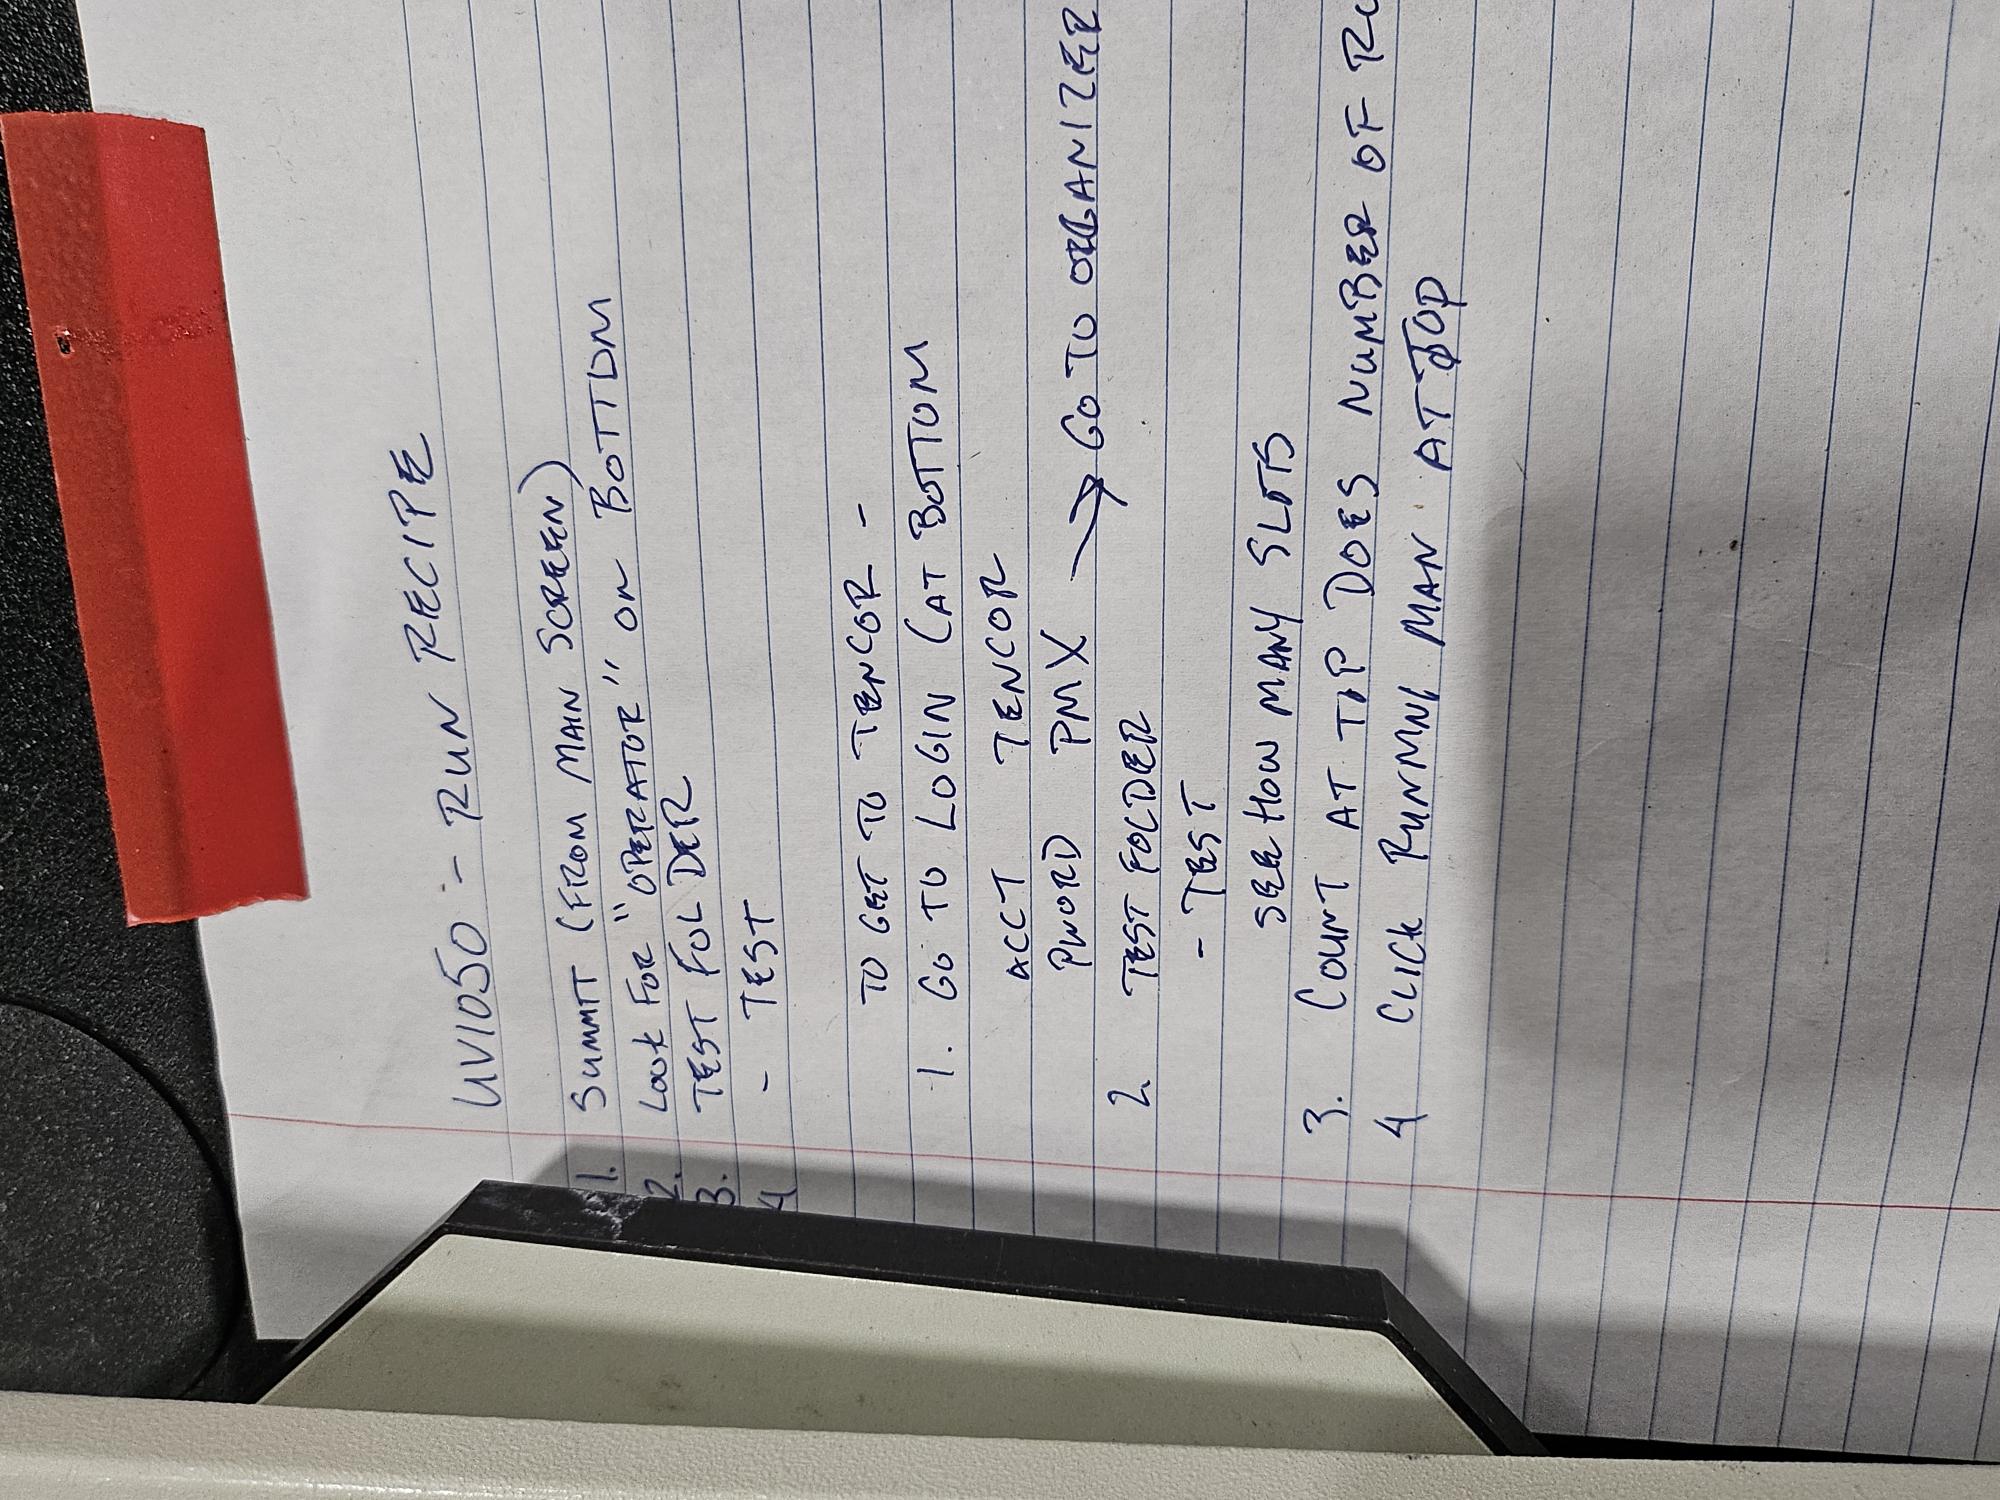 UV1050 - RUN RECIPE
1. SUMMIT (FROM MAIN SCREEN)
2. LOOK FOR "OPERATOR" ON BOTTOM
3. TEST FOLDER
4 - TEST
TO GET TO TENCOR -
1. GO TO LOGIN (AT BOTTOM
ACCT TENCOR
PWORD PMX → GO TO ORGANIZER
2. TEST FOLDER
- TEST
SEE HOW MANY SLOTS
3. COUNT AT TIP DOES NUMBER OF
4 CLICK MAN AT TOP